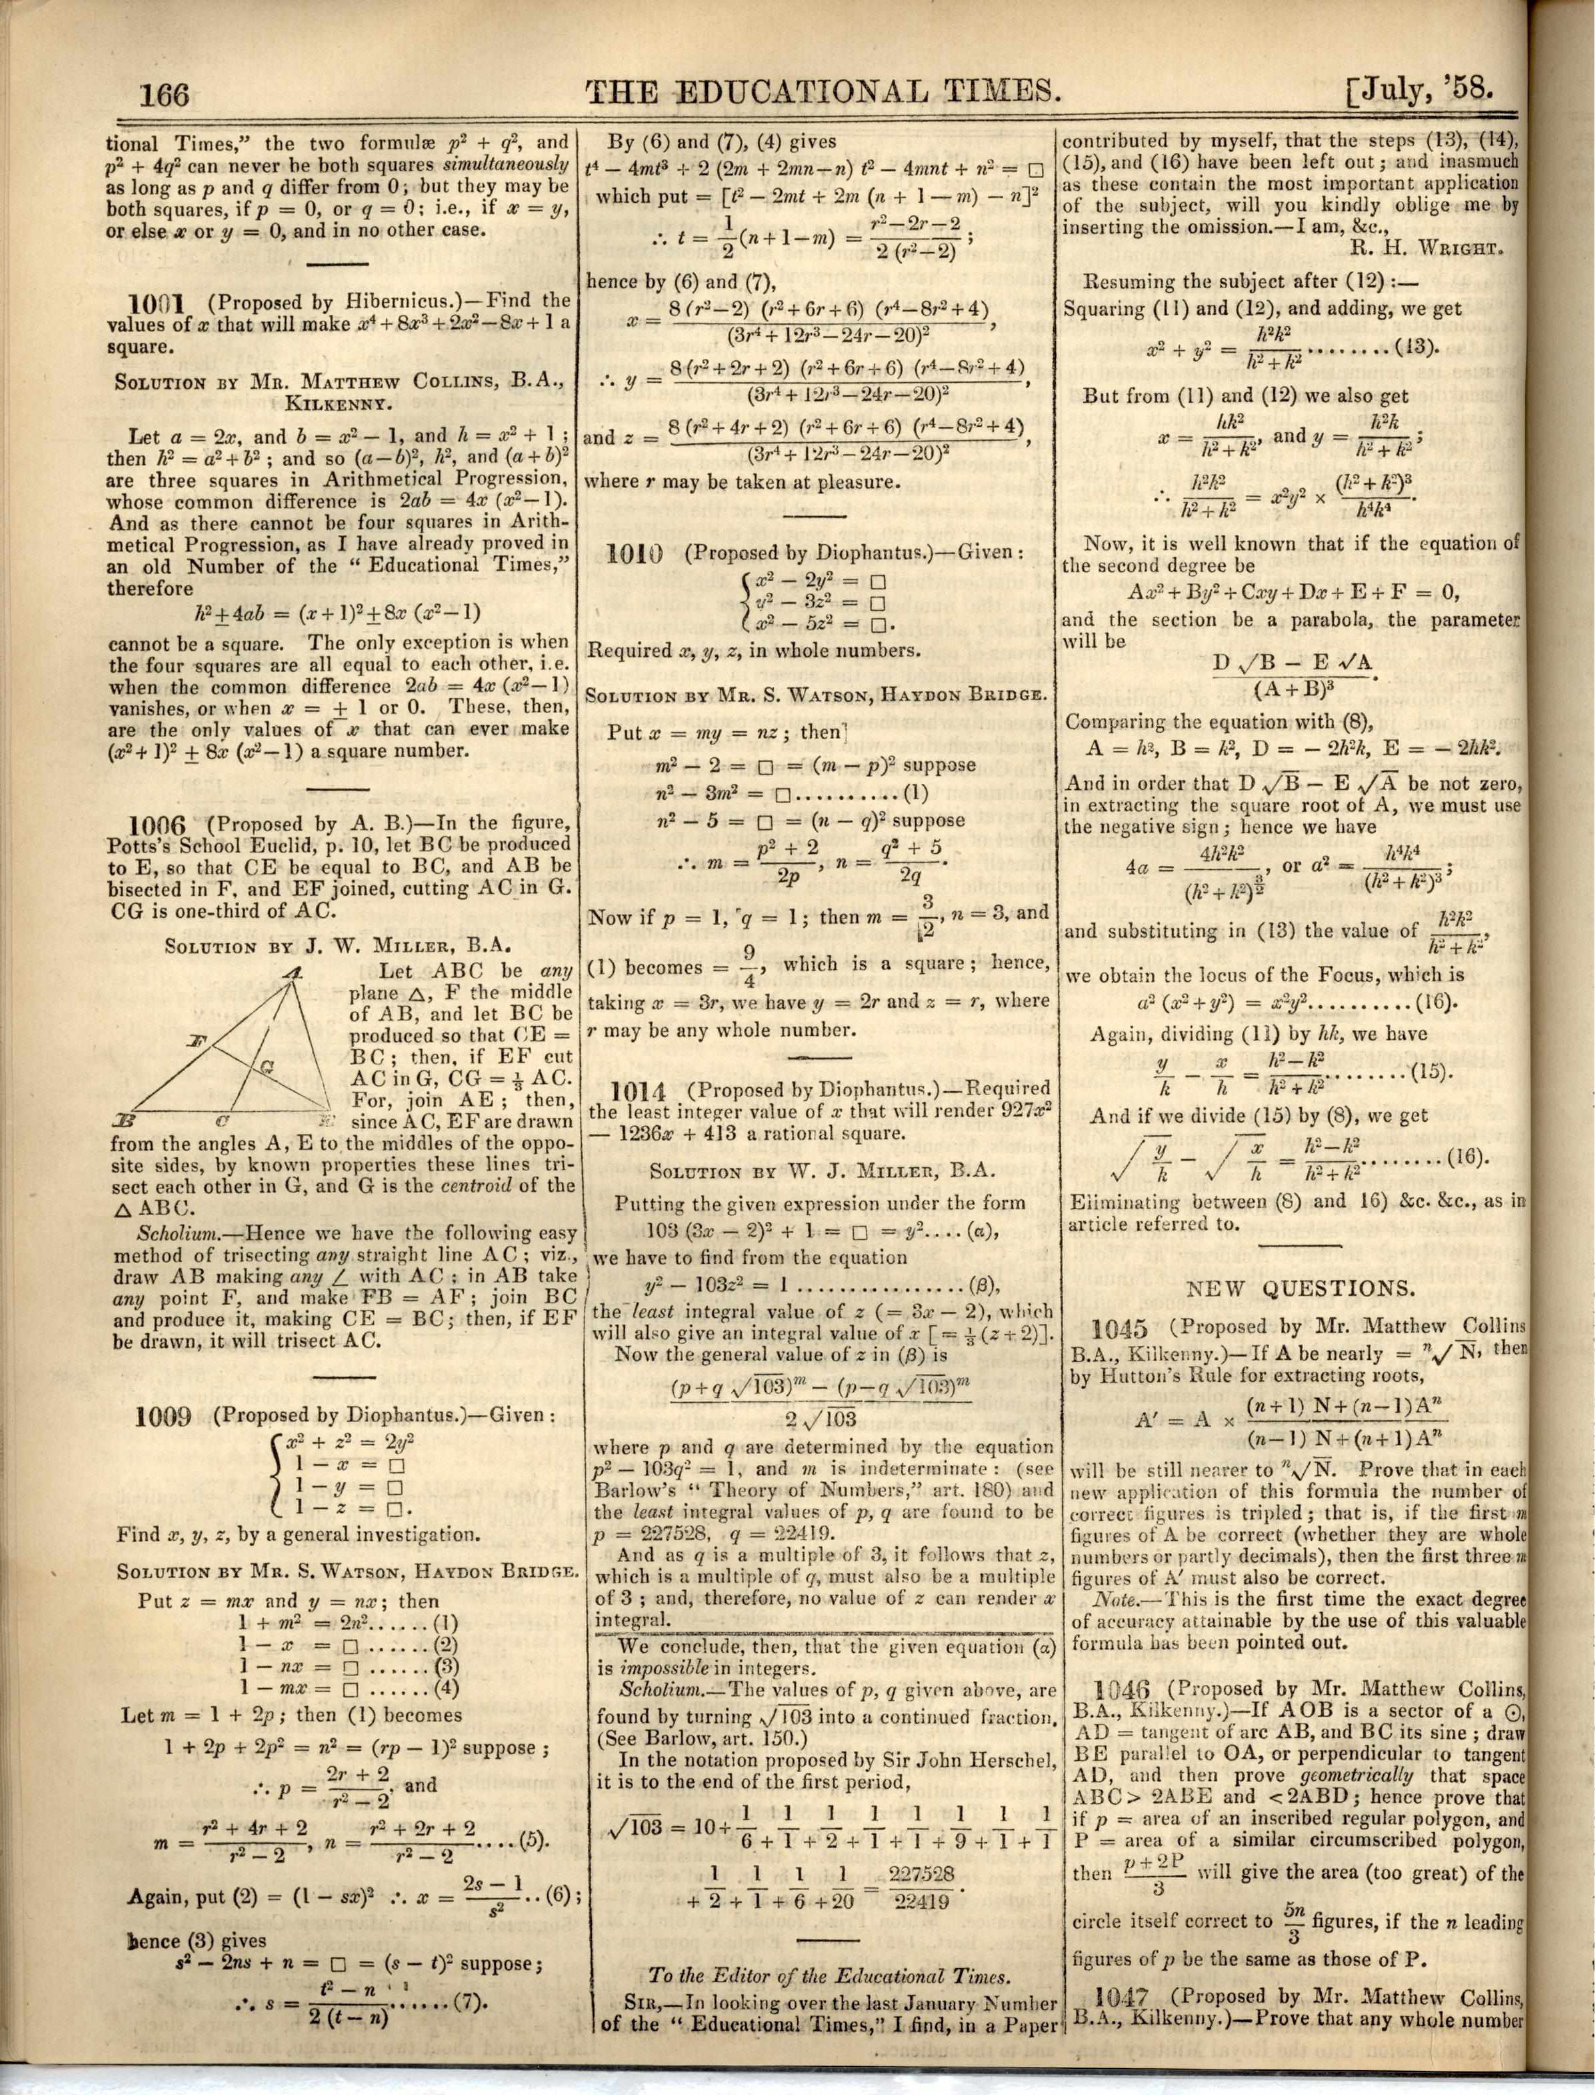 166
THE EDUCATIONAL TIMES.
[July, '58.
tional Times," the two formulæ p² + q², and
p² + 4q² can never be both squares simultaneously
as long as p and q differ from 0; but they may be
both squares, if p = 0, or q = 0; i.e., if x = y,
or else x or y = 0, and in no other case.
1001 (Proposed by Hibernicus.)—Find the
values of x that will make x⁴ + 8x³ + 2x² — 8x + 1 a
square.
SOLUTION BY MR. MATTHEW COLLINS, B.A.,
KILKENNY.
Let a = 2x, and b = x² — 1, and h = x² + 1;
then h² = a² + b²; and so (a—b)², h², and (a + b)²
are three squares in Arithmetical Progression,
whose common difference is 2ab = 4x (x²—1).
And as there cannot be four squares in Arith-
metical Progression, as I have already proved in
an old Number of the "Educational Times,"
therefore
h² ± 4ab = (x+1)² ± 8x (x²—1)
cannot be a square. The only exception is when
the four squares are all equal to each other, i.e.
when the common difference 2ab = 4x (x²—1)
vanishes, or when x = ± 1 or 0. These, then,
are the only values of x that can ever make
(x²+ 1)² ± 8x (x²—1) a square number.
1006 (Proposed by A. B.)—In the figure,
Potts's School Euclid, p. 10, let BC be produced
to E, so that CE be equal to BC, and AB be
bisected in F, and EF joined, cutting AC in G.
CG is one-third of AC.
SOLUTION BY J. W. MILLER, B.A.
A
F
G
B C E
Let ABC be any
plane △, F the middle
of AB, and let BC be
produced so that CE =
BC; then, if EF cut
AC in G, CG = ⅓ AC.
For, join AE; then,
since AC, EF are drawn
from the angles A, E to the middles of the oppo-
site sides, by known properties these lines tri-
sect each other in G, and G is the centroid of the
△ ABC.
Scholium.—Hence we have the following easy
method of trisecting any straight line AC; viz.,
draw AB making any ∠ with AC; in AB take
any point F, and make FB = AF; join BC
and produce it, making CE = BC; then, if EF
be drawn, it will trisect AC.
1009 (Proposed by Diophantus.)—Given:
x² + z² = 2y²
1 — x = □
1 — y = □
1 — z = □.
Find x, y, z, by a general investigation.
SOLUTION BY MR. S. WATSON, HAYDON BRIDGE.
Put z = mx and y = nx; then
1 + m² = 2n²......(1)
1 — x = □ ......(2)
1 — nx = □ ......(3)
1 — mx = □ ......(4)
Let m = 1 + 2p; then (1) becomes
1 + 2p + 2p² = n² = (rp — 1)² suppose;
∴ p = (2r + 2)/(r² — 2), and
m = (r² + 4r + 2)/(r² — 2), n = (r² + 2r + 2)/(r² — 2)....(5).
Again, put (2) = (1 — sx)² ∴ x = (2s — 1)/s² ..(6);
hence (3) gives
s² — 2ns + n = □ = (s — t)² suppose;
∴ s = (t² — n)/(2 (t — n)) ......(7).
By (6) and (7), (4) gives
t⁴ — 4mt³ + 2 (2m + 2mn—n) t² — 4mnt + n² = □
which put = [t² — 2mt + 2m (n + 1 — m) — n]²
∴ t = 1/2 (n+1—m) = (r²—2r—2)/(2 (r²—2));
hence by (6) and (7),
x = 8 (r²—2) (r²+6r+6) (r⁴—8r²+4)/(3r⁴+12r³—24r—20)²,
∴ y = 8 (r²+2r+2) (r²+6r+6) (r⁴—8r²+4)/(3r⁴+12r³—24r—20)²,
and z = 8 (r²+4r+2) (r²+6r+6) (r⁴—8r²+4)/(3r⁴+12r³—24r—20)²,
where r may be taken at pleasure.
1010 (Proposed by Diophantus.)—Given:
x² — 2y² = □
y² — 3z² = □
x² — 5z² = □.
Required x, y, z, in whole numbers.
SOLUTION BY MR. S. WATSON, HAYDON BRIDGE.
Put x = my = nz; then
m² — 2 = □ = (m — p)² suppose
n² — 3m² = □..........(1)
n² — 5 = □ = (n — q)² suppose
∴ m = (p² + 2)/2p, n = (q² + 5)/2q.
Now if p = 1, q = 1; then m = 3/2, n = 3, and
(1) becomes = 9/4, which is a square; hence,
taking x = 3r, we have y = 2r and z = r, where
r may be any whole number.
1014 (Proposed by Diophantus.)—Required
the least integer value of x that will render 927x²
— 1236x + 413 a rational square.
SOLUTION BY W. J. MILLER, B.A.
Putting the given expression under the form
103 (3x — 2)² + 1 = □ = y².... (α),
we have to find from the equation
y² — 103z² = 1 ................(β),
the least integral value of z (= 3x — 2), which
will also give an integral value of x [= ⅓ (z + 2)].
Now the general value of z in (β) is
((p+q √103)ᵐ — (p—q √103)ᵐ)/(2 √103)
where p and q are determined by the equation
p² — 103q² = 1, and m is indeterminate: (see
Barlow's "Theory of Numbers," art. 180) and
the least integral values of p, q are found to be
p = 227528, q = 22419.
And as q is a multiple of 3, it follows that z,
which is a multiple of q, must also be a multiple
of 3; and, therefore, no value of z can render x
integral.
We conclude, then, that the given equation (α)
is impossible in integers.
Scholium.—The values of p, q given above, are
found by turning √103 into a continued fraction.
(See Barlow, art. 150.)
In the notation proposed by Sir John Herschel,
it is to the end of the first period,
√103 = 10 + 1/6 + 1/1 + 1/2 + 1/1 + 1/1 + 1/9 + 1/1 + 1/1
+ 1/2 + 1/1 + 1/6 + 1/20 = 227528/22419.
To the Editor of the Educational Times.
SIR,—In looking over the last January Number
of the "Educational Times," I find, in a Paper
contributed by myself, that the steps (13), (14),
(15), and (16) have been left out; and inasmuch
as these contain the most important application
of the subject, will you kindly oblige me by
inserting the omission.—I am, &c.,
R. H. WRIGHT.
Resuming the subject after (12):—
Squaring (11) and (12), and adding, we get
x² + y² = h²k²/(h² + k²) ........(13).
But from (11) and (12) we also get
x = hk²/(h² + k²), and y = h²k/(h² + k²);
∴ h²k²/(h² + k²) = x²y² × (h² + k²)³/h⁴k⁴.
Now, it is well known that if the equation of
the second degree be
Ax² + By² + Cxy + Dx + E + F = 0,
and the section be a parabola, the parameter
will be
(D √B — E √A)/(A + B)³.
Comparing the equation with (8),
A = h², B = k², D = — 2h²k, E = — 2hk².
And in order that D √B — E √A be not zero,
in extracting the square root of A, we must use
the negative sign; hence we have
4a = 4h²k²/(h² + k²)^(3/2), or a² = h⁴k⁴/(h² + k²)³;
and substituting in (13) the value of h²k²/(h² + k²),
we obtain the locus of the Focus, which is
a² (x² + y²) = x²y²..........(16).
Again, dividing (11) by hk, we have
y/k — x/h = (h²—k²)/(h² + k²)........(15).
And if we divide (15) by (8), we get
√(y/k) — √(x/h) = (h²—k²)/(h² + k²)........(16).
Eliminating between (8) and 16) &c. &c., as in
article referred to.
NEW QUESTIONS.
1045 (Proposed by Mr. Matthew Collins
B.A., Kilkenny.)—If A be nearly = ⁿ√N, then
by Hutton's Rule for extracting roots,
A′ = A × ((n+1) N + (n—1) Aⁿ)/((n—1) N + (n+1) Aⁿ)
will be still nearer to ⁿ√N. Prove that in each
new application of this formula the number of
correct figures is tripled; that is, if the first m
figures of A be correct (whether they are whole
numbers or partly decimals), then the first three m
figures of A′ must also be correct.
Note.—This is the first time the exact degree
of accuracy attainable by the use of this valuable
formula has been pointed out.
1046 (Proposed by Mr. Matthew Collins,
B.A., Kilkenny.)—If AOB is a sector of a ⊙,
AD = tangent of arc AB, and BC its sine; draw
BE parallel to OA, or perpendicular to tangent
AD, and then prove geometrically that space
ABC > 2ABE and < 2ABD; hence prove that
if p = area of an inscribed regular polygon, and
P = area of a similar circumscribed polygon,
then (p + 2P)/3 will give the area (too great) of the
circle itself correct to 5n/3 figures, if the n leading
figures of p be the same as those of P.
1047 (Proposed by Mr. Matthew Collins,
B.A., Kilkenny.)—Prove that any whole number